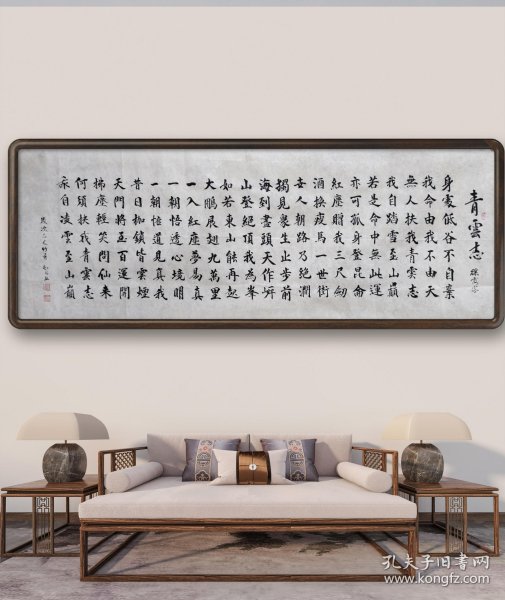 青雲志
身處低谷不自棄
我命由我不由天
無人扶我青雲志
我自踏雪至山巔
若是命中無此運
亦可孤身登昆侖
紅塵贈我三尺劍
酒換瘦馬一世街
人朝路乃絕澗
獨見衆生止步前
海到盡頭天作岸
山登絕頂我為峯
如若東山能再起
大鵬展翅九萬里
一入紅塵夢易真
一朝悟透心境明
一朝悟道見真我
昔日枷鎖皆雲煙
天門將至百運開
拂塵輕笑問仙來
何須扶我青雲志
我自凌雲至山巔
孔夫子旧书网
www.kongfz.com